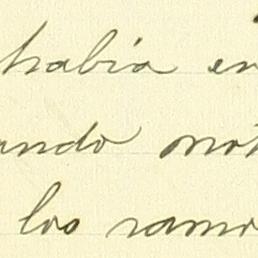 había en
ando not
los ramo